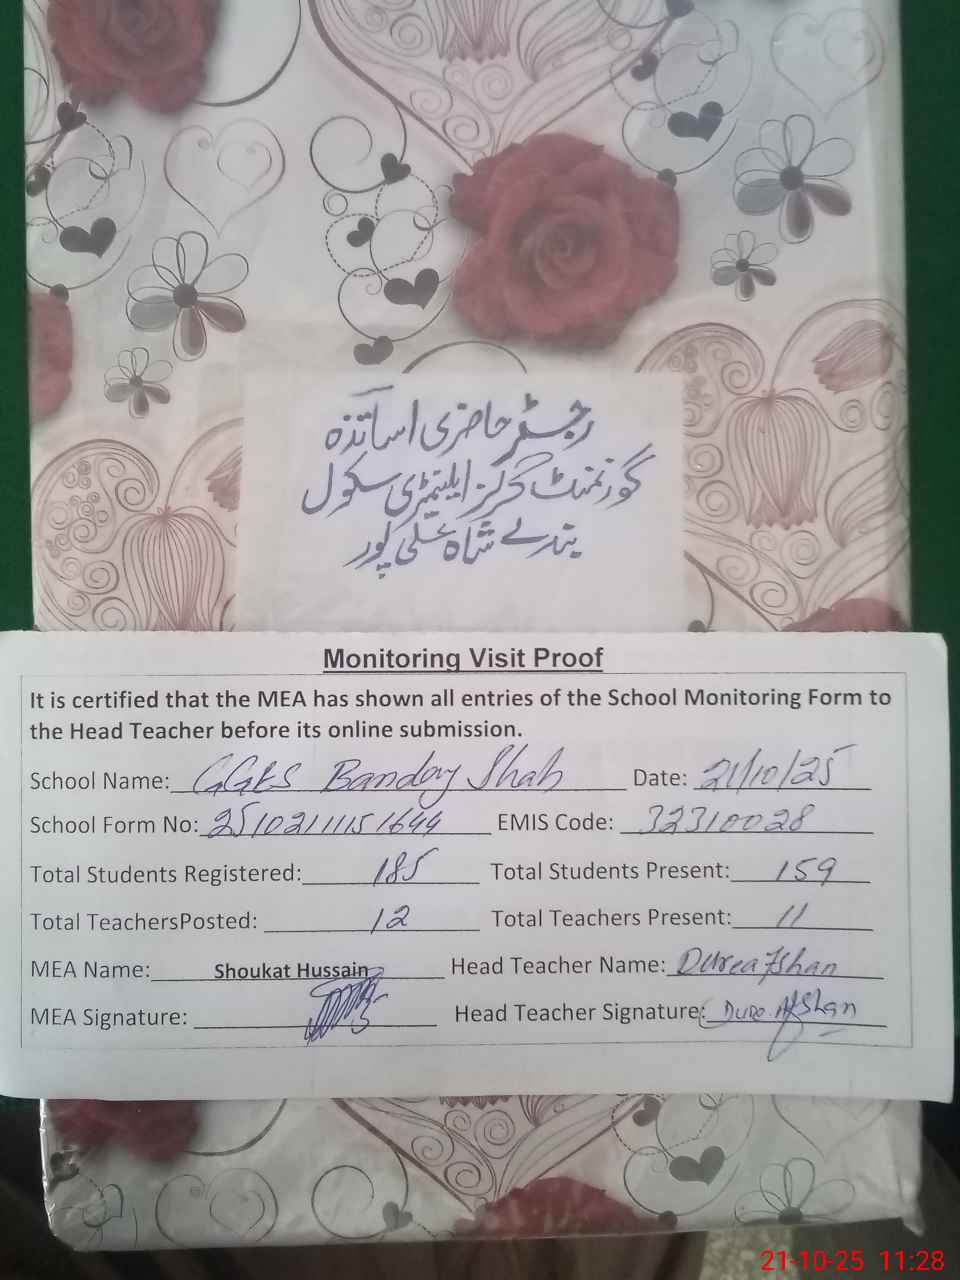 رجسٹر حاضری اساتذہ
گورنمنٹ گرلز ایلیمنٹری سکول
بندے شاہ علی پور
Monitoring Visit Proof
It is certified that the MEA has shown all entries of the School Monitoring Form to
the Head Teacher before its online submission.
School Name: GGES Banday Shah Date: 21/10/25
School Form No: 2510211151644 EMIS Code: 32310028
Total Students Registered: 185 Total Students Present: 159
Total TeachersPosted: 12 Total Teachers Present: 11
MEA Name: Shoukat Hussain Head Teacher Name: Durea Fshan
MEA Signature: Head Teacher Signature: Dure Afshan
21-10-25 11:28